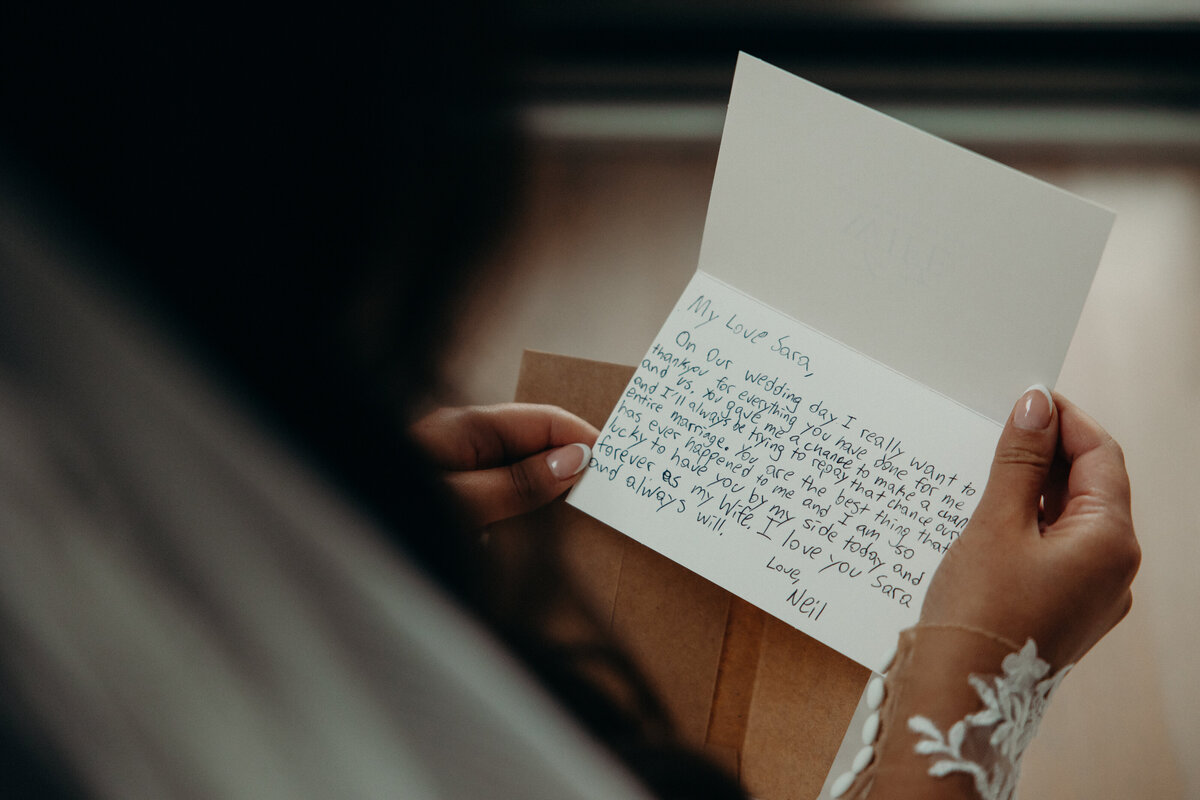 My Love Sara,
On Our wedding day I really want to
thankyou for everything you have done for me
and us. You gave me a chance to make a chan
and I'll always be trying to repay that chance our
entire marriage. You are the best thing that
has ever happened to me and I am so
lucky to have you by my side today and
forever as my Wife. I love you Sara
and always will.
Love,
Neil